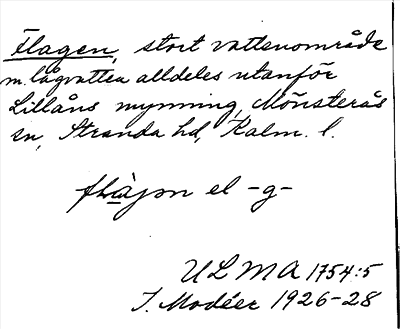 Flagen, stort vattenområde
m. lågvatten alldeles utanför
Lillåns mynning, Mönsterås
sn, Stranda hd, Kalm. l.
el -g-
ULMA 1754:5
I. Modéer 1926-28